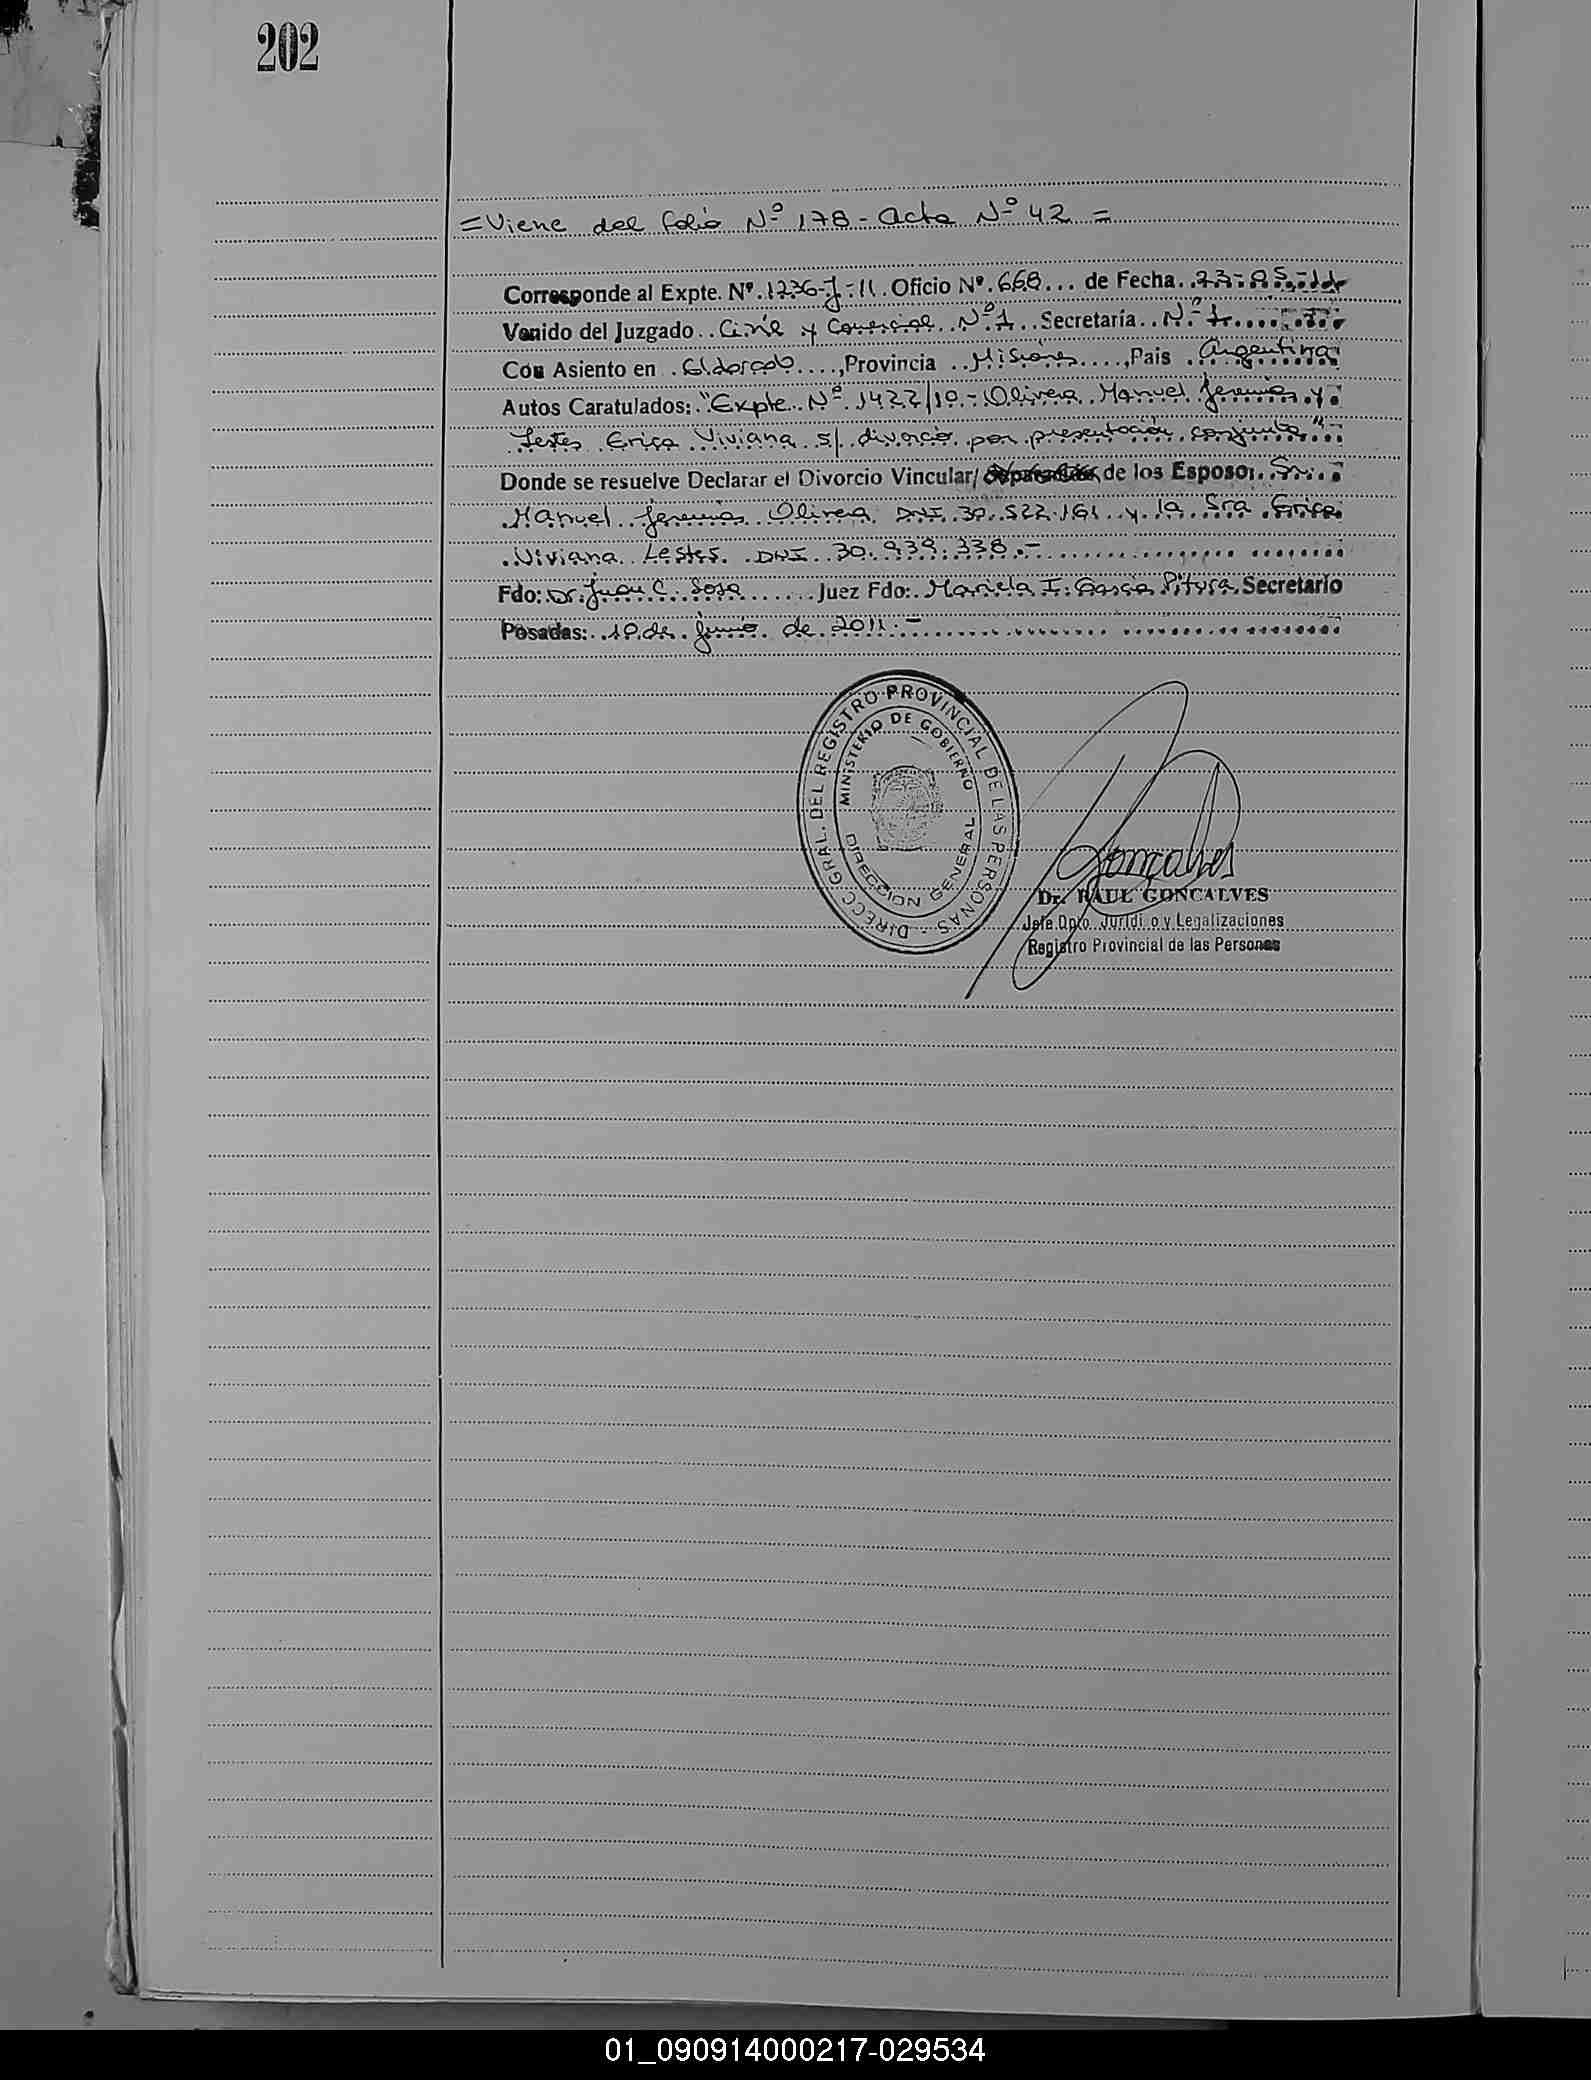 202
=Viene del folio Nº 178 - Acta Nº 42 =
Corresponde al Expte. Nº. 1236-J-11. Oficio Nº. 668 ... de Fecha. 23-05-11
Venido del Juzgado.. Civil y Comercial. Nº 1.. Secretaría.. Nº 1.....
Con Asiento en . Eldorado ...., Provincia .. Misiones ...., Pais . Argentina
Autos Caratulados: "Expte. Nº 1422/10 - Olivera Manuel Jeremías y
Lestes Erica Viviana s/ divorcio por presentación conjunta"
Donde se resuelve Declarar el Divorcio Vincular/ de los Esposo: Sr.
Manuel Jeremías Olivera DNI 30.522.161 y la Sra Erica
Viviana Lestes. DNI 30.939.338.-
Fdo: Dr. Juan C. Sosa ....... Juez Fdo: Mariela I. García Secretario
Posadas: 10 de Junio de 2011.-
DIRECC. GRAL. DEL REGISTRO PROVINCIAL DE LAS PERSONAS -
MINISTERIO DE GOBIERNO
DIRECCION GENERAL
Goncalves
Dr. RAUL GONCALVES
Jefe Dpto. Juridi o y Legalizaciones
Registro Provincial de las Personas
01_090914000217-029534